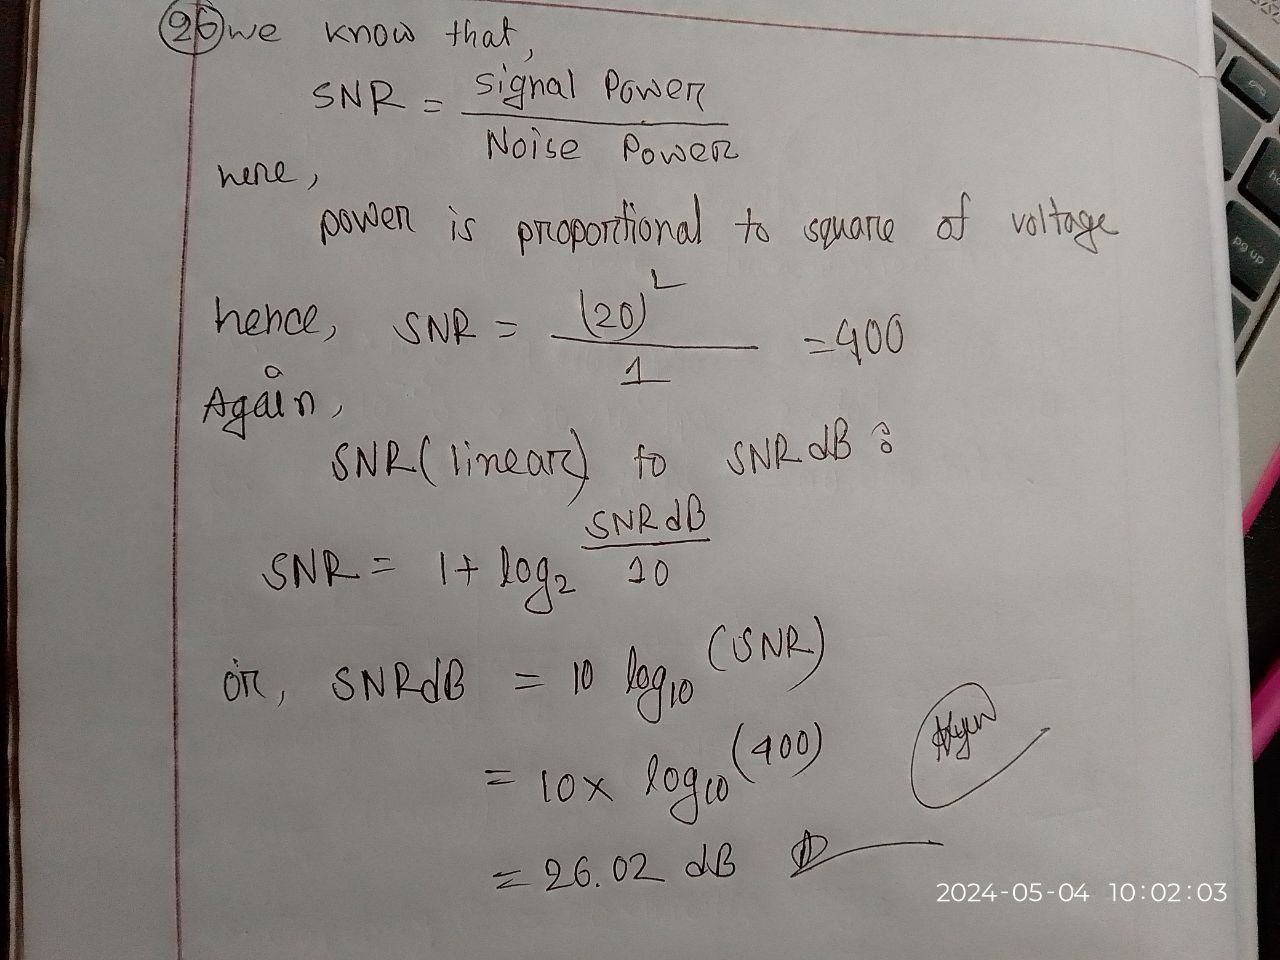 26 we know that,
SNR = Signal Power / Noise Power
here,
power is proportional to square of voltage
hence, SNR = (20)² / 1 = 400
Again,
SNR (linear) to SNR dB :
SNR = 1 + log₂ SNR dB / 10
or, SNR dB = 10 log₁₀ (SNR)
= 10 x log₁₀ (400)
= 26.02 dB
2024-05-04 10:02:03
pg up